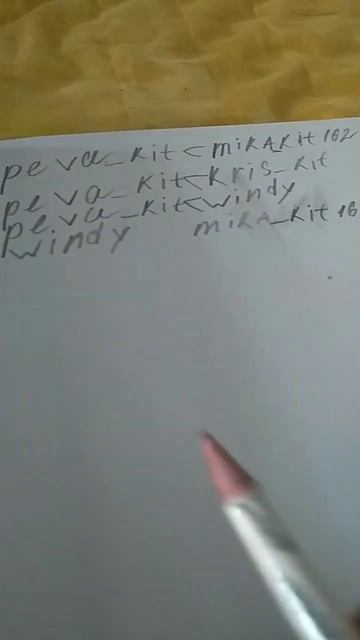 peva_kit < mikakit 162
peva_kit < kris_kit
peva_kit < windy
windy mika_kit 16